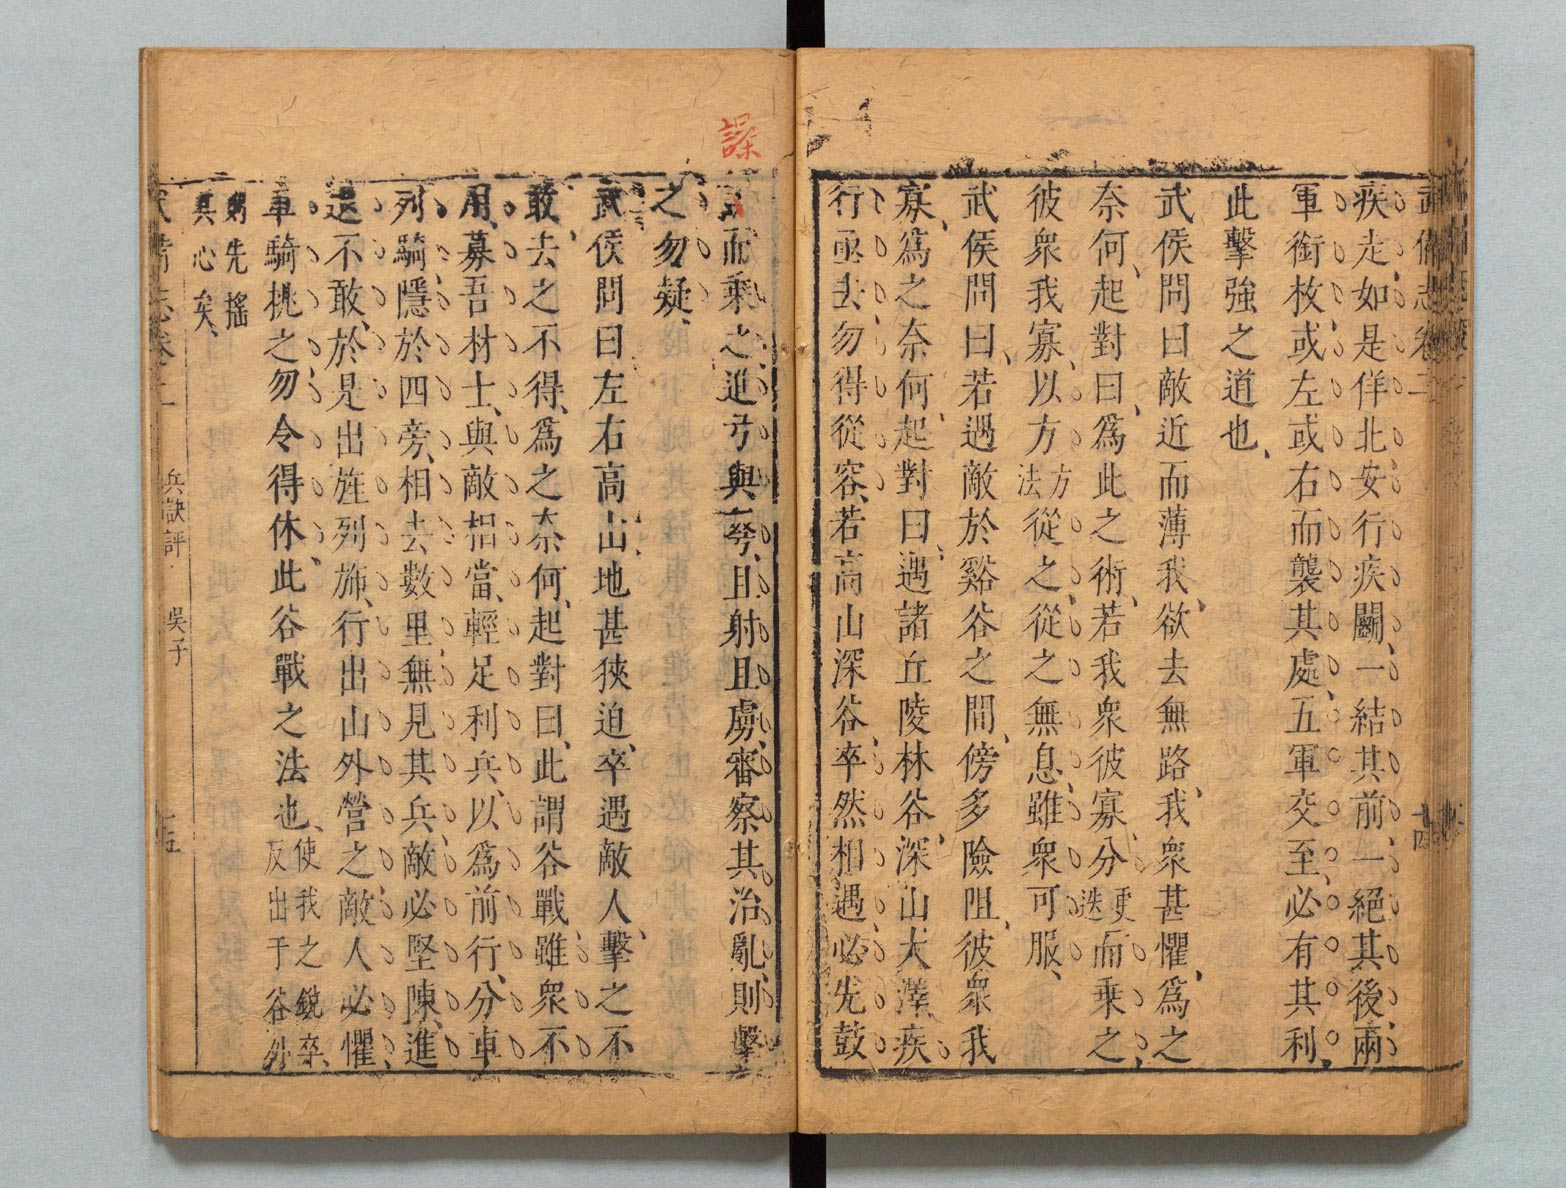 武備志卷二
十四
疾走如是佯北安行疾鬭一結其前一絕其後兩
軍銜枚或左或右而襲其處五軍交至必有其利
此擊強之道也
武侯問曰敵近而薄我欲去無路我衆甚懼爲之
奈何起對曰爲此之術若我衆彼寡分更迭而乘之
彼衆我寡以方方法從之從之無息雖衆可服
武侯問曰若遇敵於谿谷之間傍多險阻彼衆我
寡爲之奈何起對曰遇諸丘陵林谷深山大澤疾
行亟去勿得從容若高山深谷卒然相遇必先鼓
譟
譟而乘之進弓與弩且射且虜審察其治亂則擊
之勿疑
武侯問曰左右高山地甚狹迫卒遇敵人擊之不
敢去之不得爲之奈何起對曰此謂谷戰雖衆不
用募吾材士與敵相當輕足利兵以爲前行分車
列騎隱於四旁相去數里無見其兵敵必堅陳進
退不敢於是出旌列斾行出山外營之敵人必懼
車騎挑之勿令得休此谷戰之法也使我之銳卒
反出于谷外
則先搖
其心矣
武備志卷二 兵訣評 吳子 十五